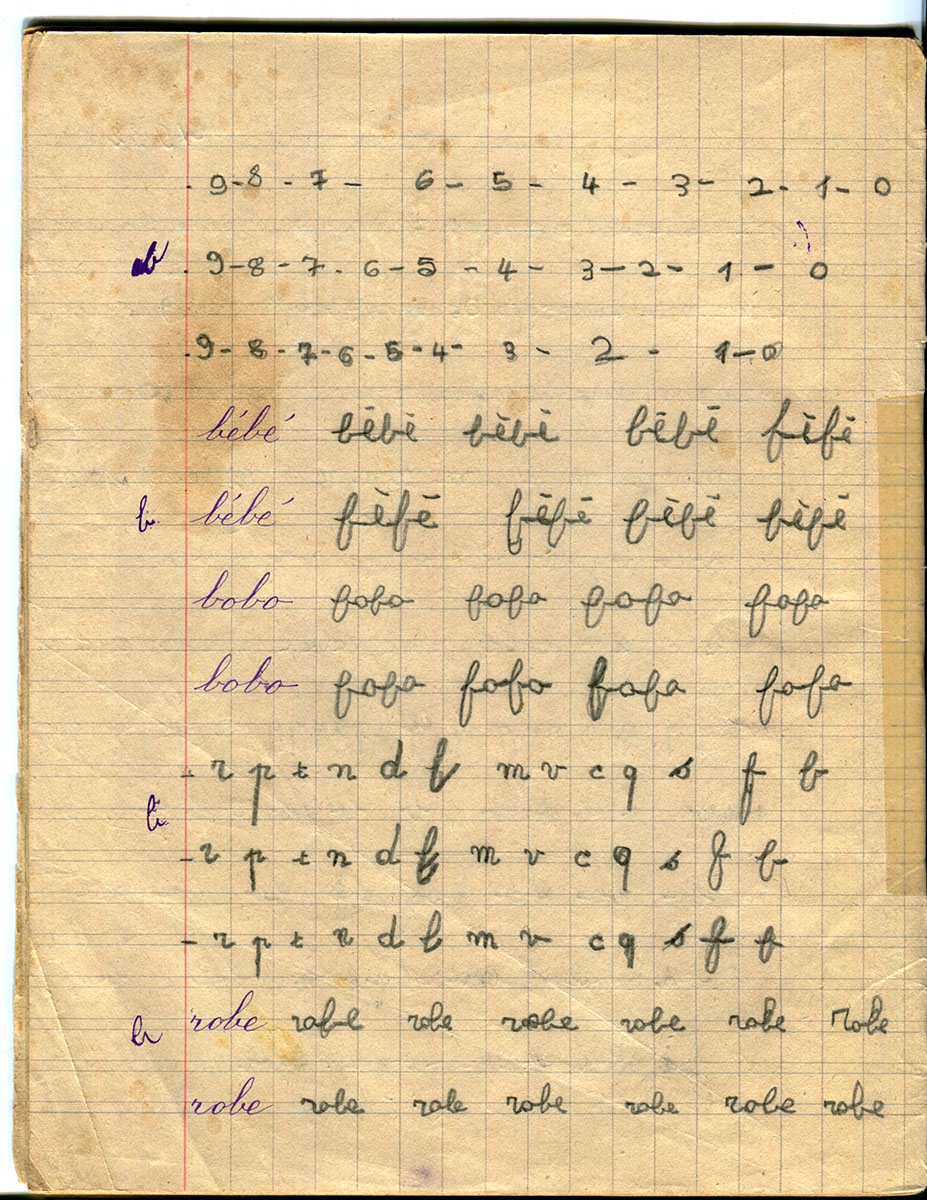 . 9 - 8 - 7 - 6 - 5 - 4 - 3 - 2 - 1 - 0
ab . 9 - 8 - 7 . 6 - 5 - 4 - 3 - 2 - 1 - 0
. 9 - 8 - 7 - 6 - 5 - 4 - 3 - 2 - 1 - 0
bébé bébé bébé bébé féfé
b bébé féfé féfé féfé béfé
bobo fofo fofa fofa fofa
bobo fofa fofo fofa fofa
- r p t n d b m v c q s f b
- r p t n d b m v c q s f b
- r p t n d b m v c q s f f
b robe rofe robe robe robe robe robe
robe robe robe robe robe robe robe